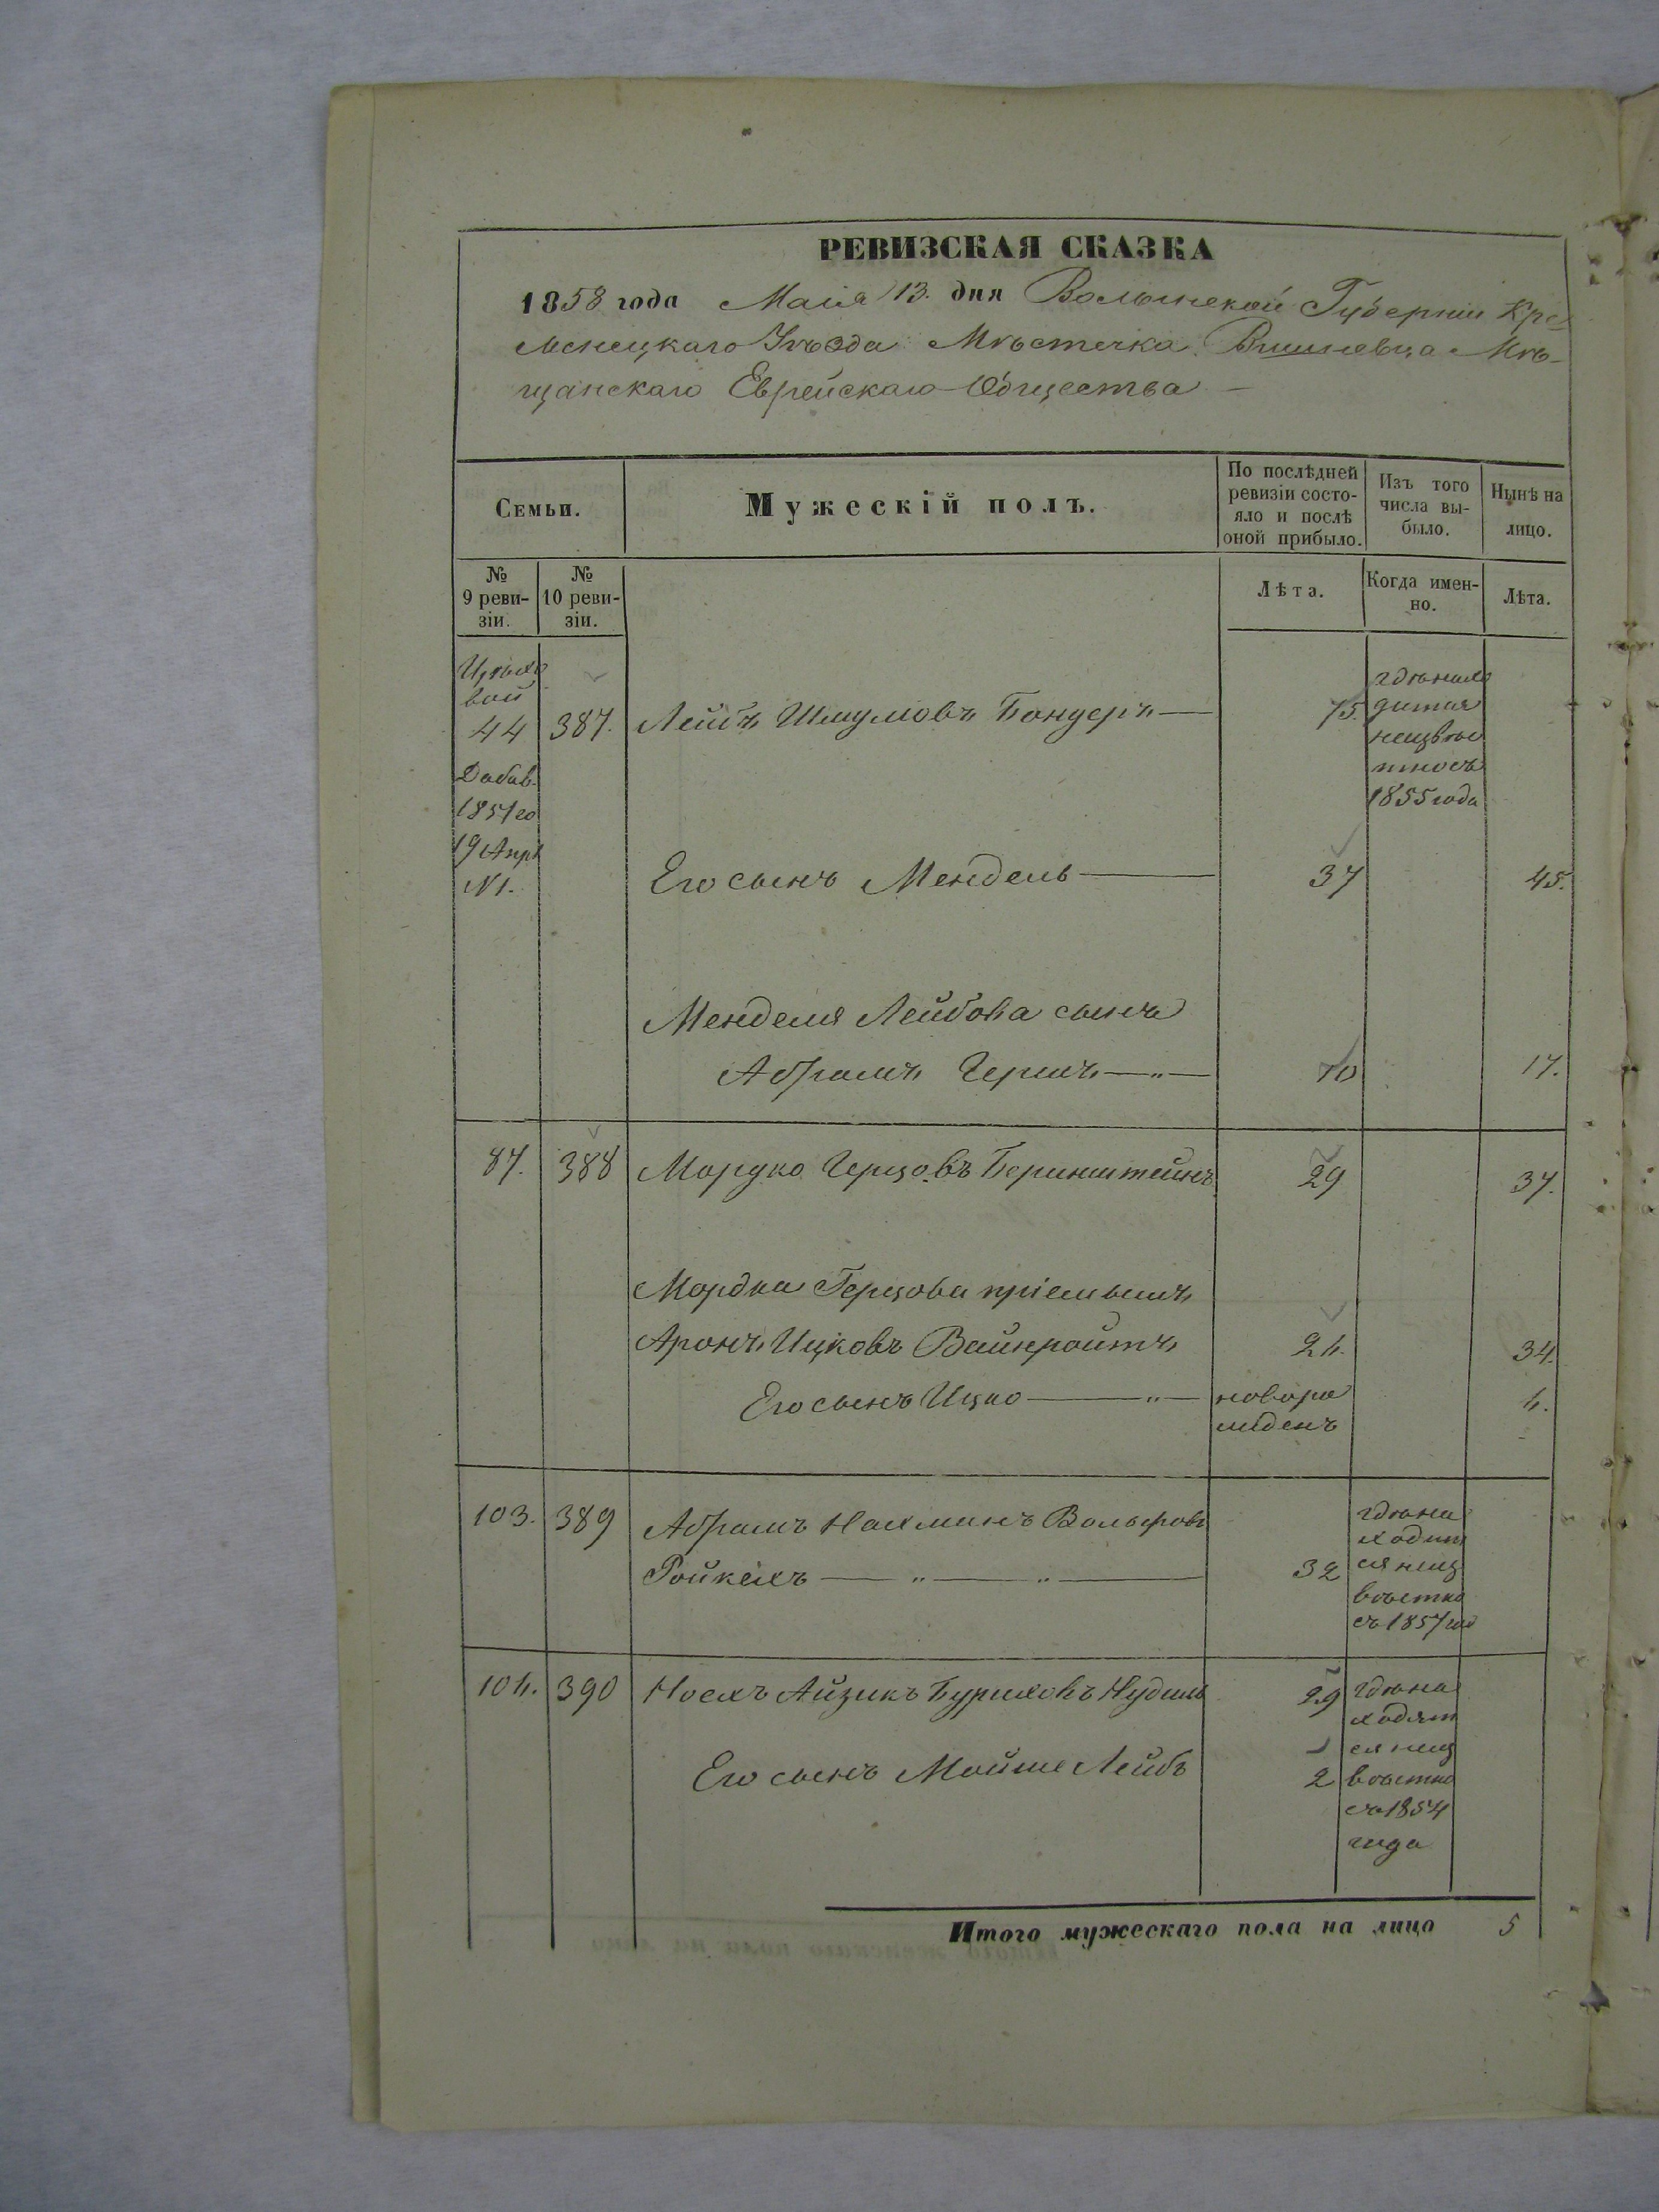 РЕВИЗСКАЯ СКАЗКА
1858 года Маія 13. дня Волынской Губерніи Кре-
менецкаго Уѣзда Мѣстечка Вишневца Мѣ-
щанскаго Еврейскаго Общества —
Семьи.
Мужескій полъ.
По послѣдней
ревизіи состо-
яло и послѣ
оной прибыло.
Изъ того
числа вы-
было.
Нынѣ на
лицо.
№
9 реви-
зіи.
№
10 реви-
зіи.
Лѣта.
Когда имен-
но.
Лѣта.
вой
44 387. Лейбъ Шмулювъ Бондеръ — 75.
гдѣ нахо
дится
неизвѣс
тно съ
1855 года
Добав.
1851 го
19 Апрѣ
N 1.
Его сынъ Мендель — 37 45.
Менделя Лейбова сынъ
Абрамъ Гершъ — " — 10 17.
87. 388 Мордко Герцовъ Беринштейнъ 29 37.
Мордка Герцова пріемышъ
Аронъ Ицковъ Вайнройтъ 24. 34.
Его сынъ Ицко — " — новоро
жденъ
4.
103. 389 Абрамъ Нахманъ Вольфовъ
Ройкехъ — " — " — 32
гдѣ на
ходит
ся неиз
вѣстно
съ 1857 год
104. 390 Носехъ Айзикъ Буриховъ Нудиль 29
Его сынъ Мойше Лейбъ 2
гдѣ на
ходят
ся неиз
вѣстно
съ 1854
года
Итого мужескаго пола на лицо 5